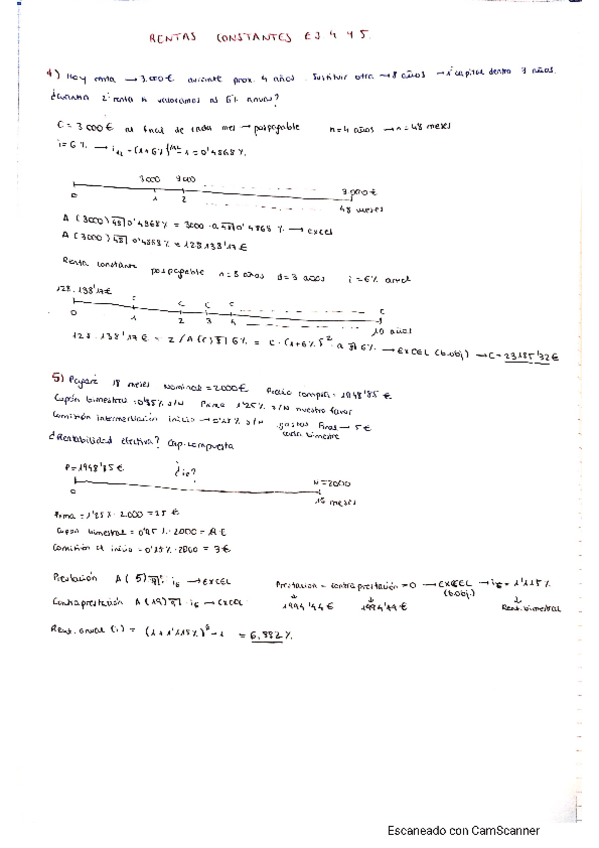 RENTAS CONSTANTES EJ 4 Y 5.
4) Hoy renta → 3.000€ durante prox. 4 años. Sustituir otra → 8 años → 1º capital dentro 3 años.
¿Cuantía 2ª renta si valoramos al 6% anual?
C = 3000€ al final de cada mes → pospagable n = 4 años → n = 48 meses
i = 6% → i12 = (1+6%)^1/12 - 1 = 0'4868%
3000 3000 3000€
0 1 2 48 meses
A (3000) 48| 0'4868% = 3000 · a 48| 0'4868% → EXCEL
A (3000) 48| 0'4868% = 128.138'17€
Renta constante pospagable n = 8 años d = 3 años i = 6% anual
128.138'17€ C C C C C
0 1 2 3 4 10 años
128.138'17€ = 2/A (C) 8| 6% = C · (1+6%)^-2 · a 8| 6% → EXCEL (b.obj) → C = 23185'32€
5) Pagaré 18 meses Nominal = 2000€ Precio compra = 1948'85€
Cupón bimestral = 0'95% s/N Prima 1'25% s/N nuestro favor
Comisión intermediación inicio → 0'15% s/N gastos fijos → 5€
cada bimestre
¿Rentabilidad efectiva? Cap. compuesta
P = 1948'85€ ¿i6? N = 2000
0 18 meses
Prima = 1'25% · 2.000 = 25€
Cupón bimestral = 0'95% · 2000 = 19€
Comisión al inicio = 0'15% · 2000 = 3€
Prestación A (5) 9| i6 → EXCEL Prestación - contraprestación = 0 → EXCEL (b.obj.) → i6 = 1'115%
Contraprestación A (19) 9| i6 → EXCEL 1994'44€ 1994'44€ Rent. bimestral
Rent. anual (i) = (1+1'115%)^6 - 1 = 6,882%
Escaneado con CamScanner